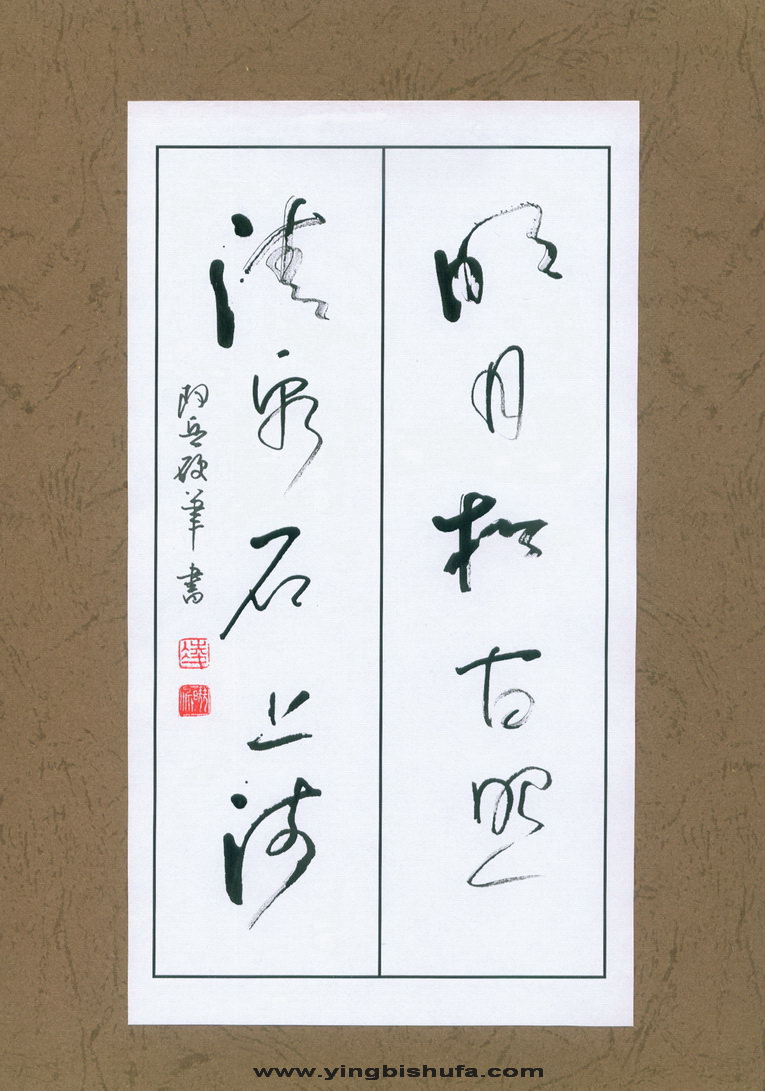 明月松间照
清泉石上流
硬筆書
www.yingbishufa.com